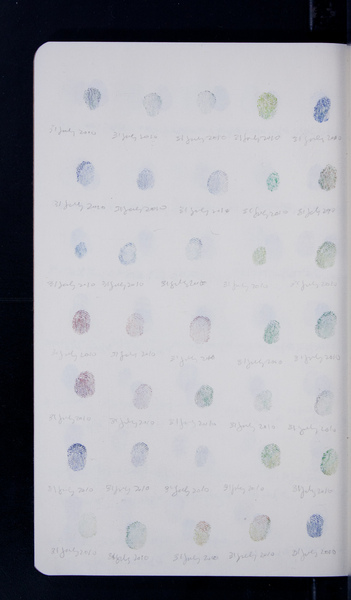 31 July 2020 31 July 2020 31 July 2020 31 July 2020 31 July 2020
31 July 2020 31 July 2020 31 July 2020 31 July 2020 31 July 2020
31 July 2020 31 July 2020 31 July 2020 31 July 2020 31 July 2020
31 July 2020 31 July 2020 31 July 2020 31 July 2020 31 July 2020
31 July 2020 31 July 2020 31 July 2020 31 July 2020 31 July 2020
31 July 2020 31 July 2020 31 July 2020 31 July 2020 31 July 2020
31 July 2020 31 July 2020 31 July 2020 31 July 2020 31 July 2020